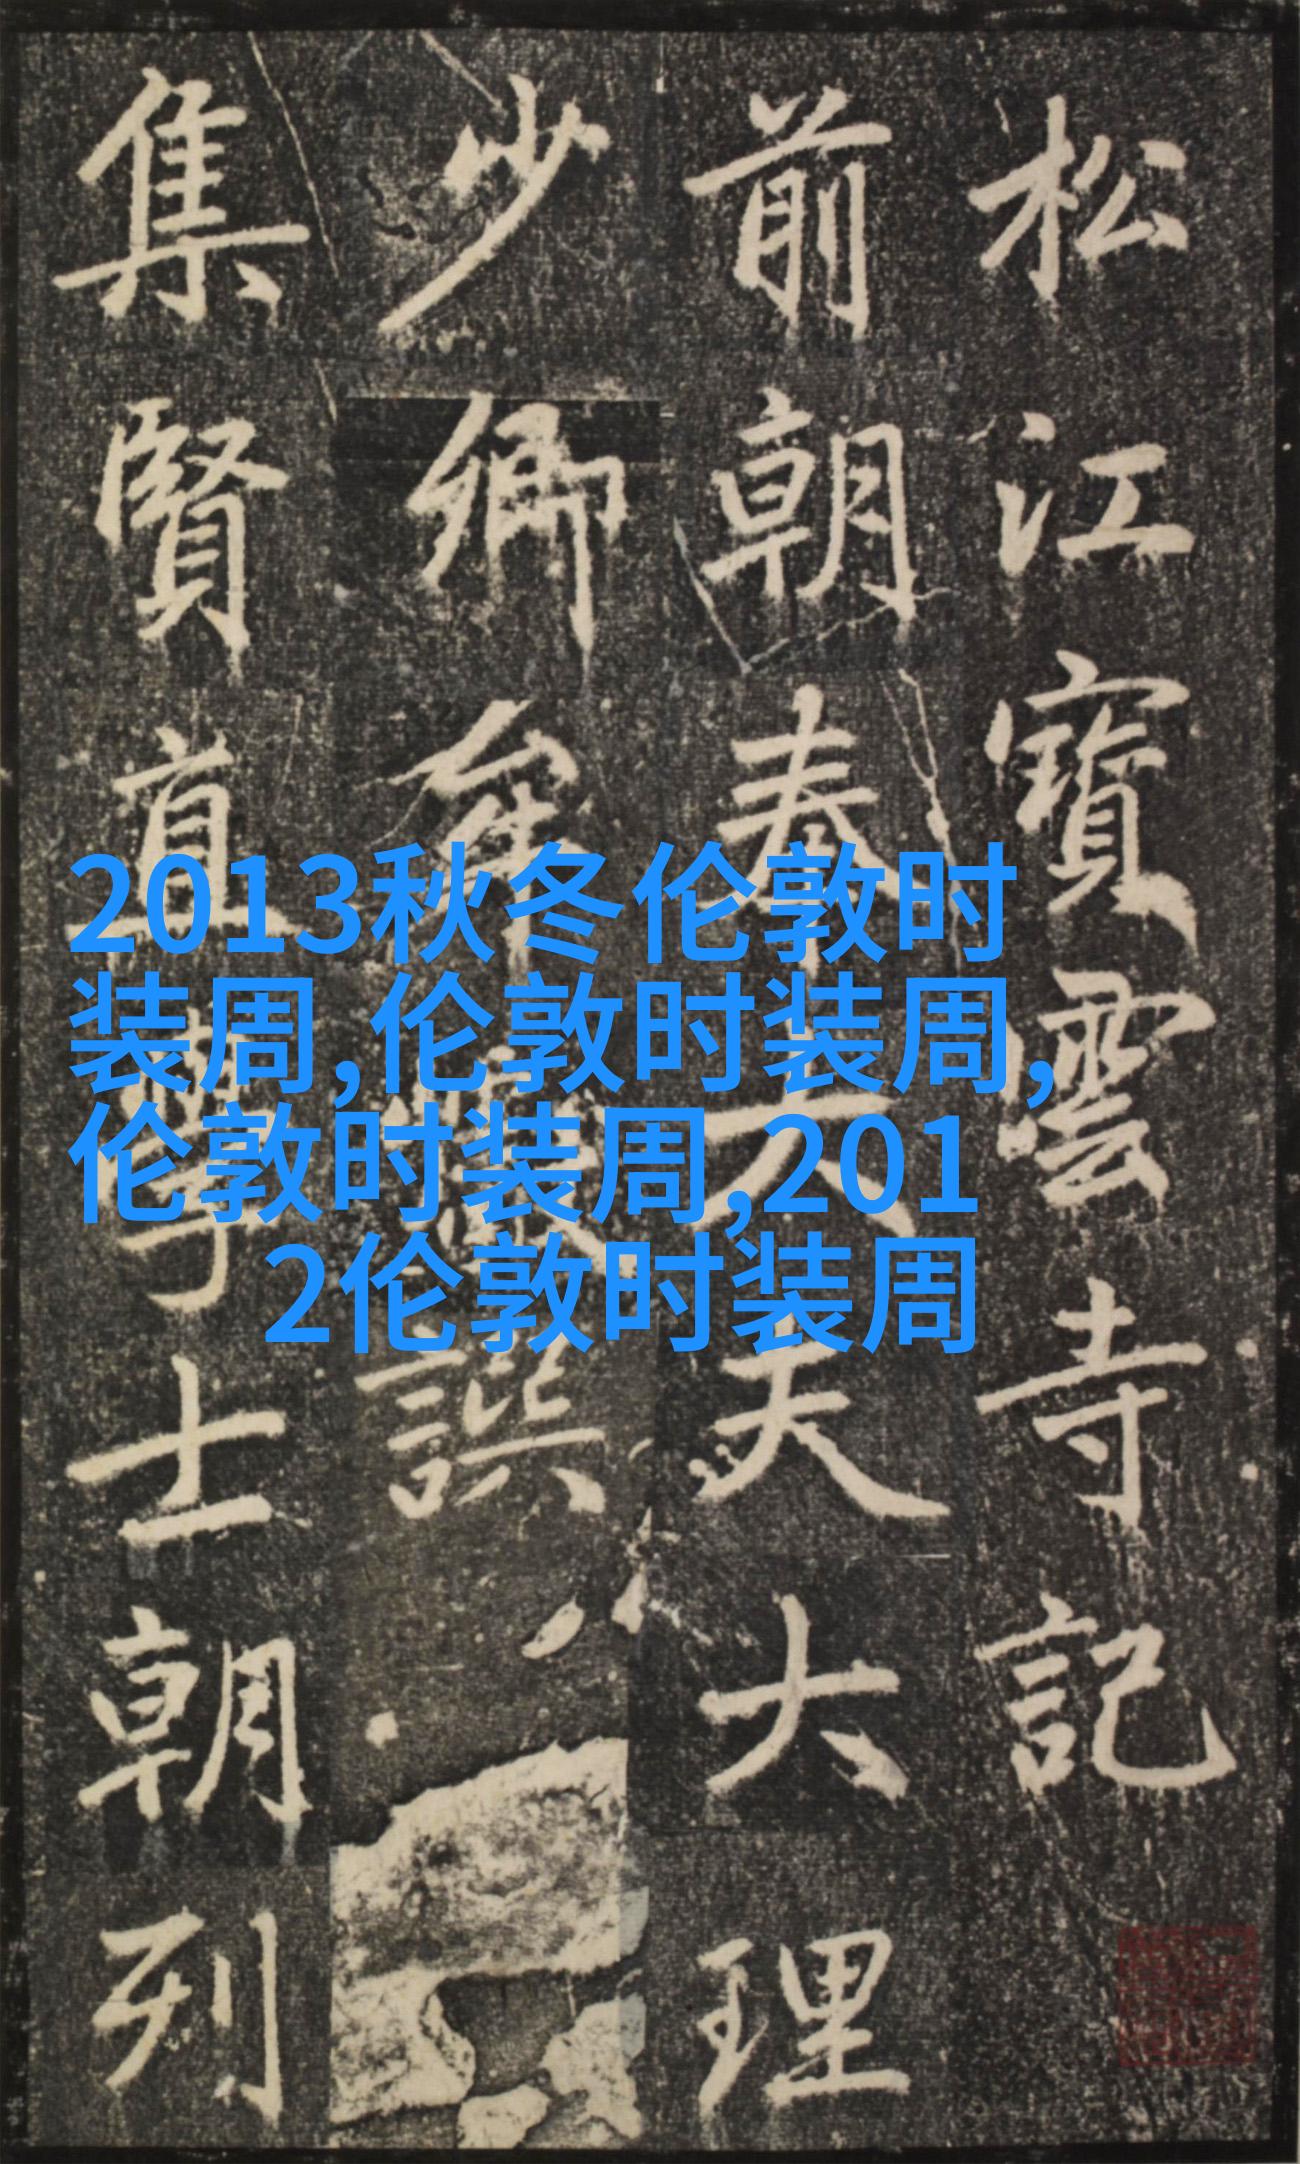 松江寶雲寺記
前朝奉大夫大理
少卿牟巘譔
集賢直學士朝列
2013秋冬伦敦时
装周,伦敦时装周,
伦敦时装周,201
2伦敦时装周